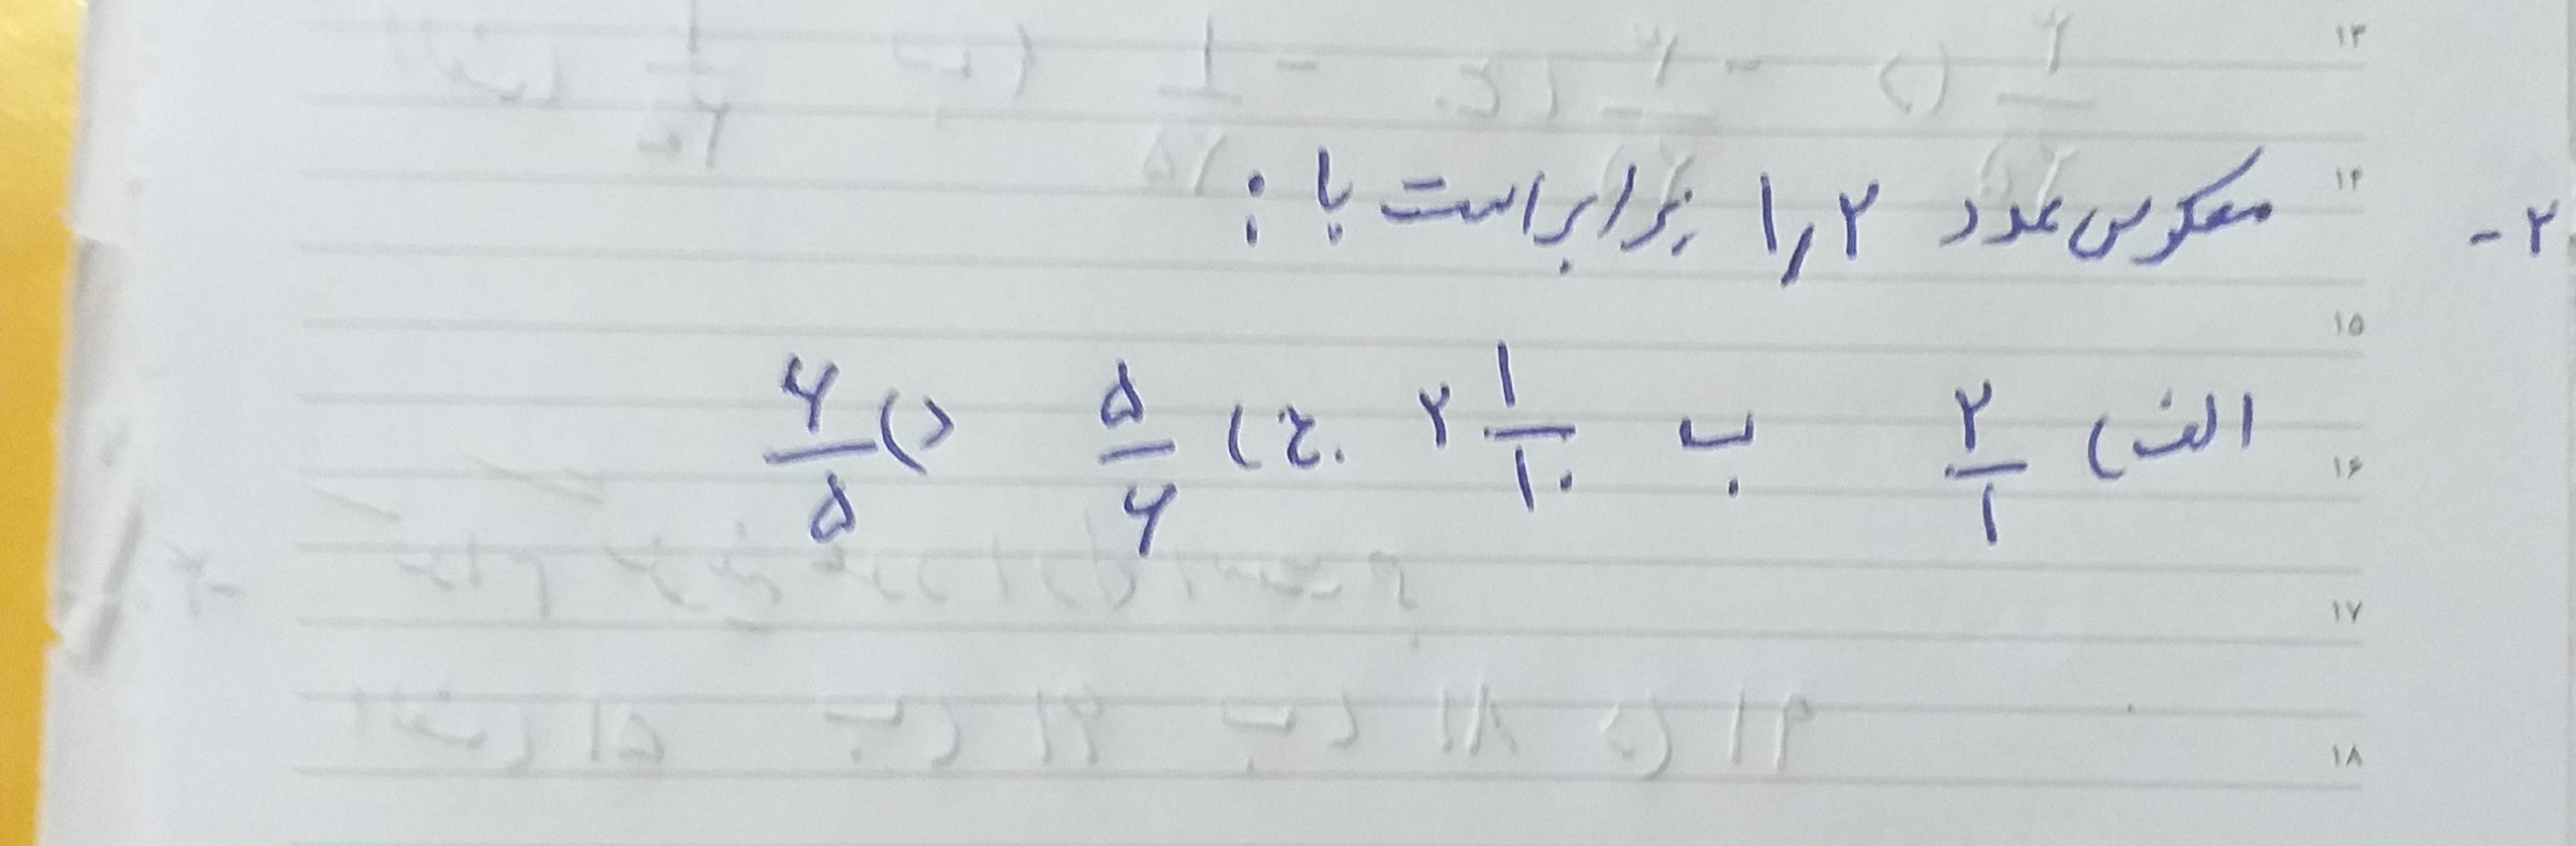 ۱۳
۱۴
۲- معکوس عدد ۱٫۲ برابر است با :
۱۵
الف) ۲/۱ ب ۲ ۱/۱۰ ج) ۵/۶ د) ۶/۵
۱۶
۱۷
۱۸